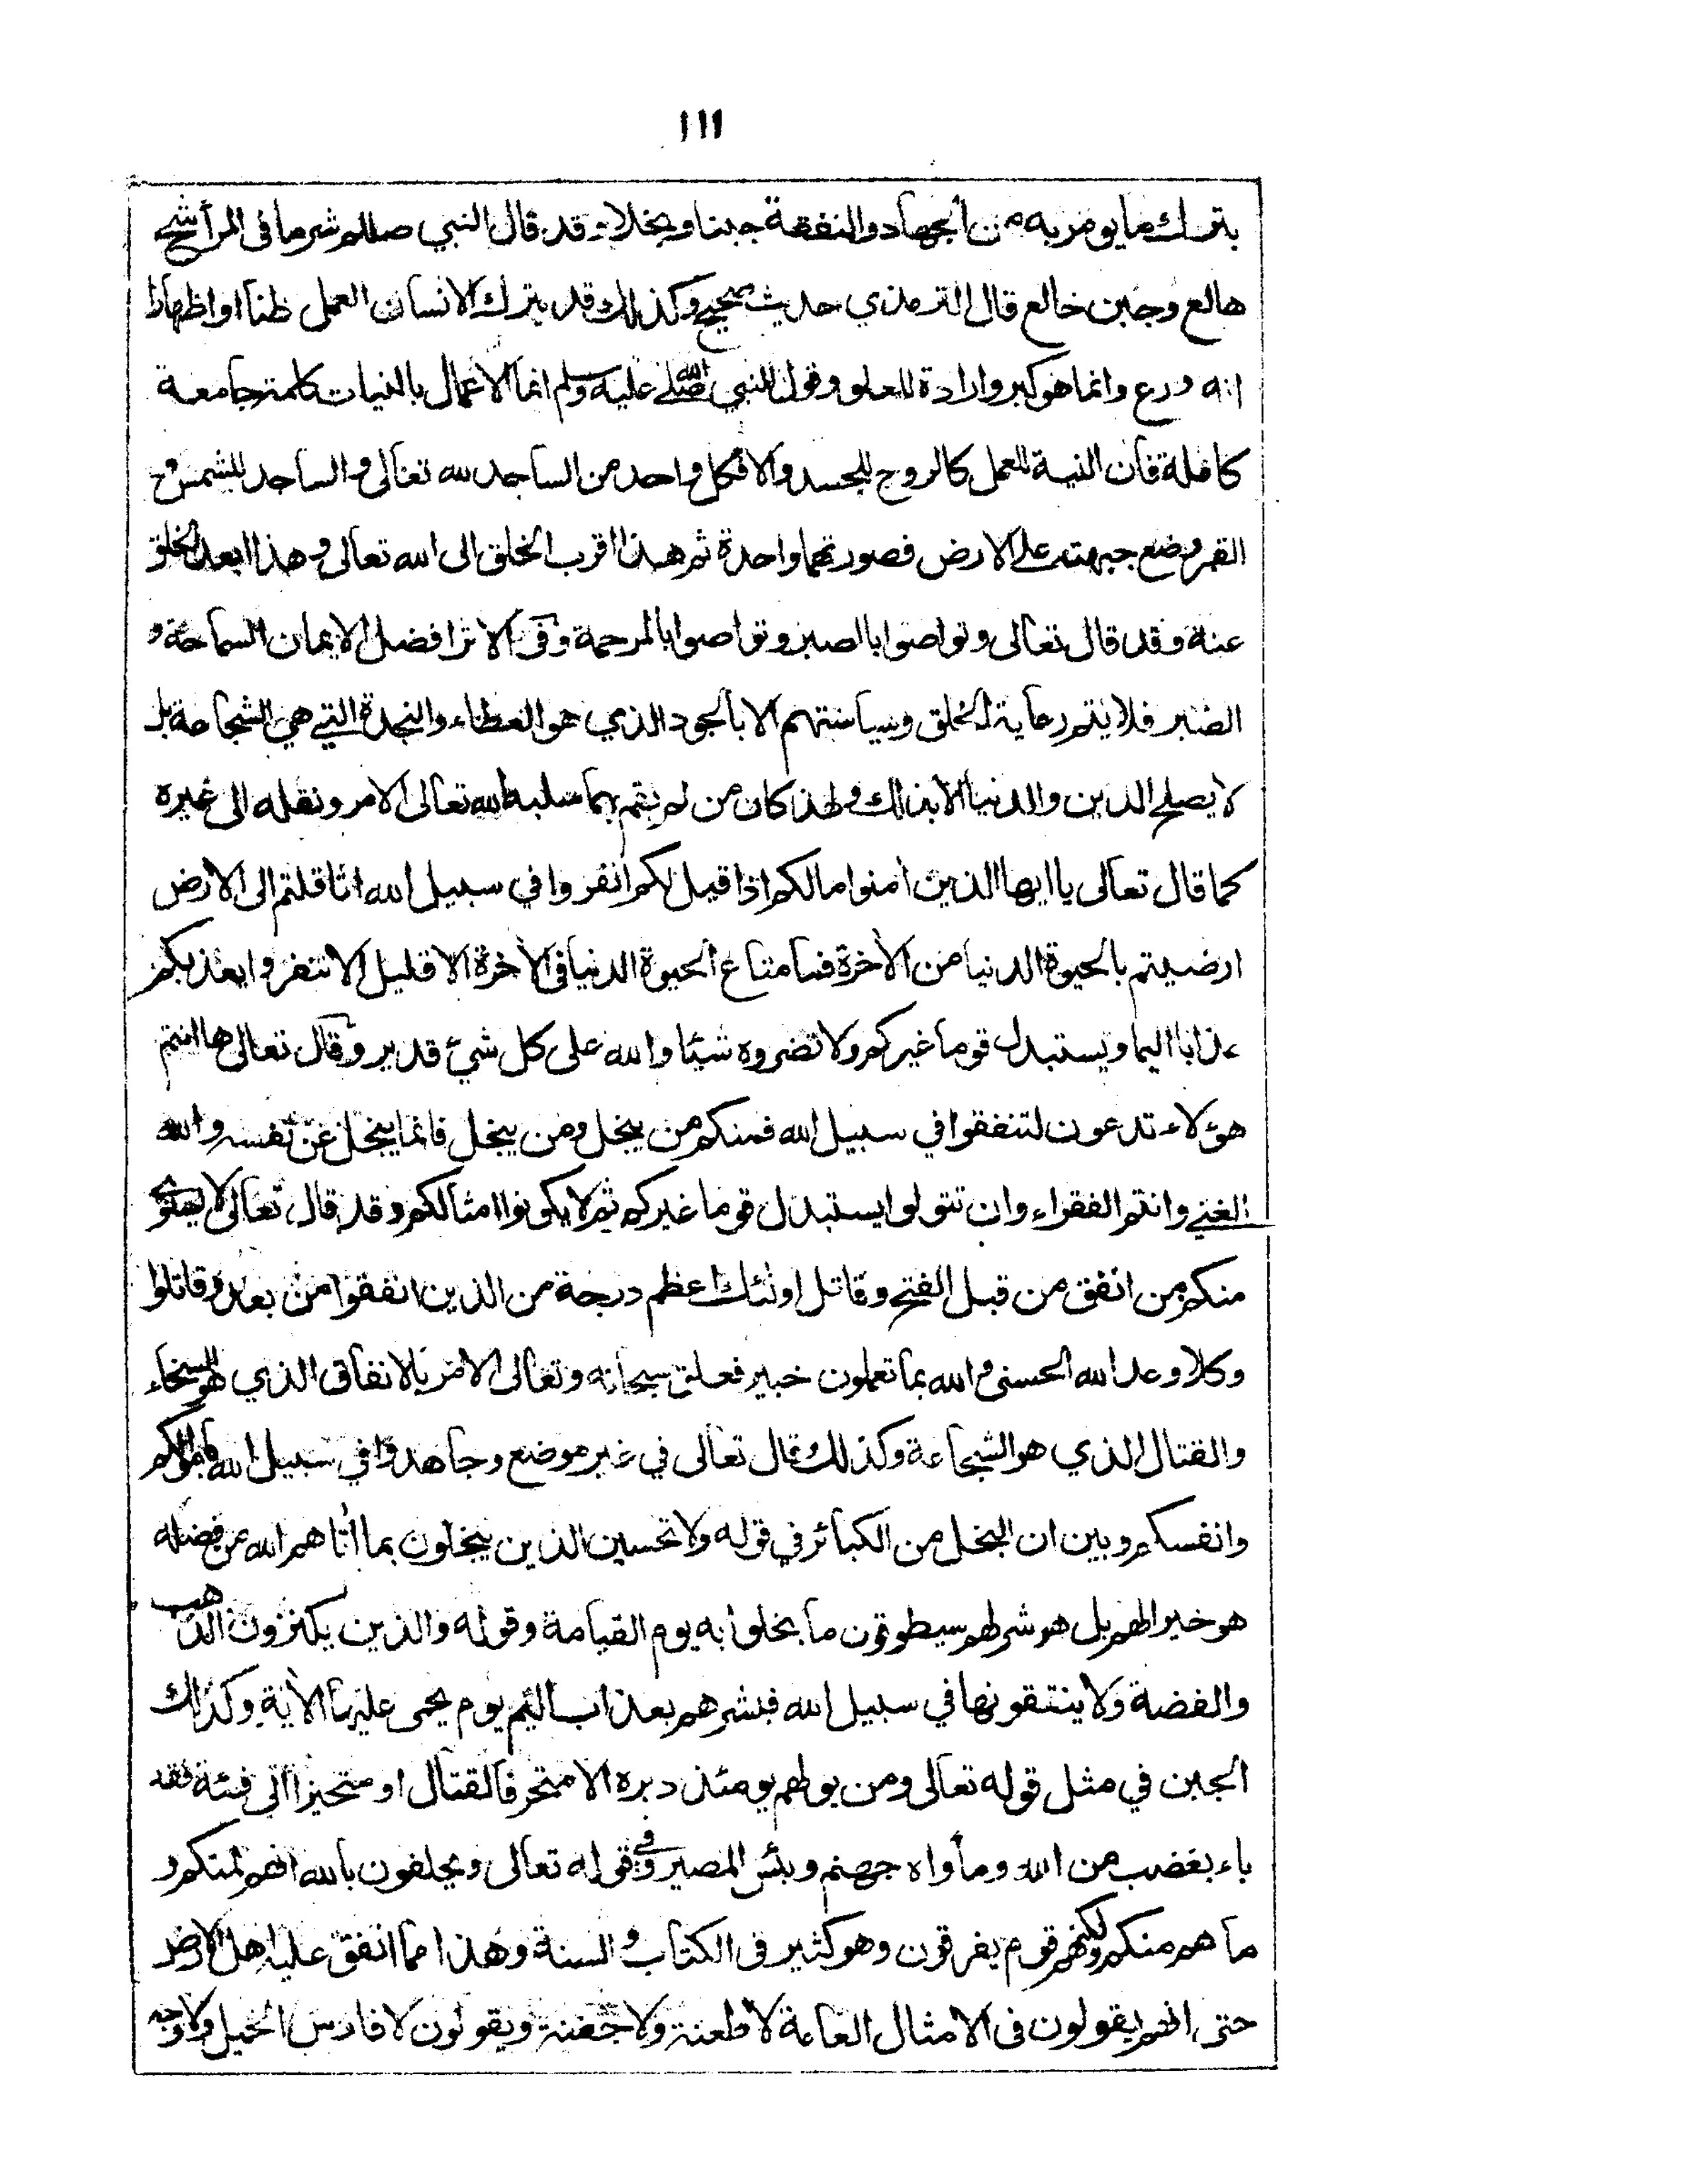 ١١١
بترك ما يومر به من الجهاد والنفقة جبنا وبخلا وقد قال النبي صللم شر ما فى المرأ شح
هالع وجبن خالع قال الترمذي حديث صحيح وكذلك قد يترك الانسان العمل ظنا او اظهارا
انه ورع وانما هو كبر وارادة للعلو وقول النبي صلى الله عليه وسلم انما الاعمال بالنيات كلمة جامعة
كاملة فان النية للعمل كالروح للجسد والا فكل واحد من الساجد لله تعالى والساجد للشمس و
القمر وضع جبهته على الارض فصورتهما واحدة ثم هذا اقرب الخلق الى الله تعالى وهذا ابعد الخلق
عنه وقد قال تعالى وتواصوا باالصبر وتواصوا بالمرحمة وفى الاثر افضل الايمان السماحة و
الصبر فلا يتم رعاية الخلق وسياستهم الا بالجود الذي هو العطاء والنجدة التي هي الشجاعة بل
لا يصلح الدين والدنيا الا بذالك ولهذ كان من لم يقم بهما سلبه الله تعالى الامر ونقله الى غيره
كما قال تعالى يا ايها الذين أمنوا مالكم اذا قيل لكم انفروا في سبيل الله اثاقلتم الى الارض
ارضيتم بالحيوة الدنيا من الأخرة فما متاع الحيوة الدنيا فى الأخرة الا قليل الا تنفروا يعذبكم
عذابا اليما ويستبدل قوما غيركم ولا تضروه شيئا والله على كل شيء قدير وقال تعالى ها انتم
هؤلاء تدعون لتنفقوا في سبيل الله فمنكم من يبخل ومن يبخل فانما يبخل عن نفسه والله
الغني وانتم الفقراء وان تتولوا يستبدل قوما غيركم ثم لا يكونوا امثالكم وقد قال تعالى لا يستوي
منكم من انفق من قبل الفتح وقاتل اولئك اعظم درجة من الذين انفقوا من بعد وقاتلوا
وكلا وعد الله الحسنى والله بما تعملون خبير فعلق سبحانه وتعالى الامر بالانفاق الذي هو السخاء
والقتال الذي هو الشجاعة وكذلك قال تعالى في غير موضع وجاهدوا في سبيل الله باموالكم
وانفسكم وبين ان البخل من الكبائر في قوله ولا تحسبن الذين يبخلون بما اٰتاهم الله من فضله
هو خيرا لهم بل هو شر لهم سيطوقون ما بخلوا به يوم القيامة وقوله والذين يكنزون الذهب
والفضة ولا ينفقونها في سبيل الله فبشرهم بعذاب اليم يوم يحمى عليها الأية وكذلك
الجبن في مثل قوله تعالى ومن يولهم يومئذ دبره الا متحرفا لقتال او متحيزا الى فئة فقد
باء بغضب من الله ومأواه جهنم وبئس المصير وفي قوله تعالى ويحلفون بالله انهم لمنكم و
ما هم منكم ولكنهم قوم يفرقون وهو كثير فى الكتاب والسنة وهذا مما اتفق عليه اهل الارض
حتى انهم يقولون فى الامثال العامة لا طعنة ولا جفنة ويقولون لا فارس الخيل ولا وجه